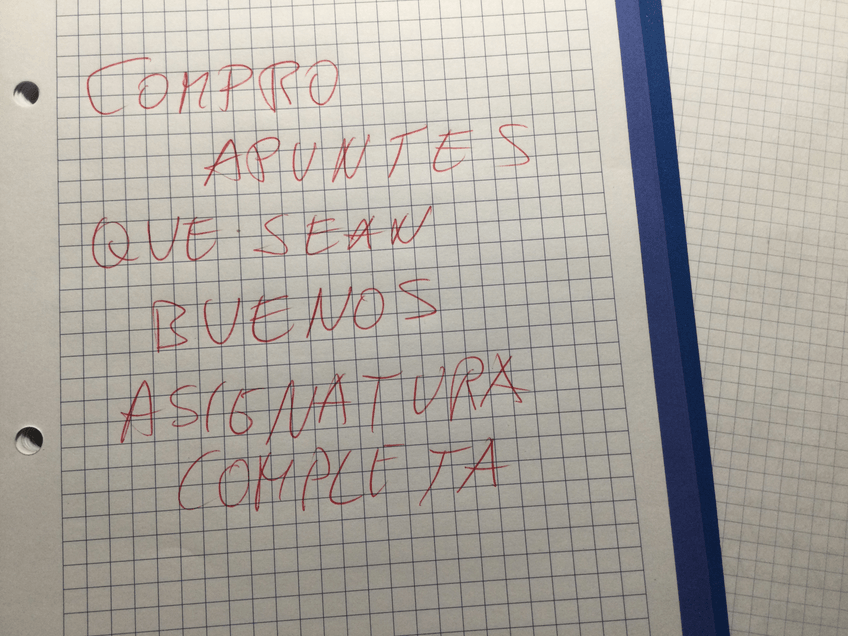 COMPRO
APUNTES
QUE SEAN
BUENOS
ASIGNATURA
COMPLETA